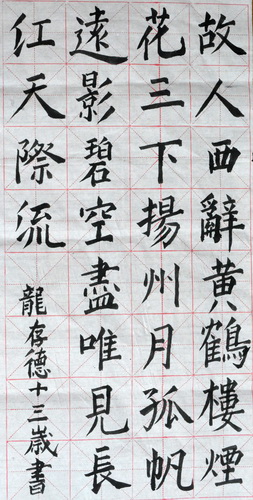 故人西辭黄鶴樓煙
花三下揚州月孤帆
遠影碧空盡唯見長
红天際流
龍存德十三歲書